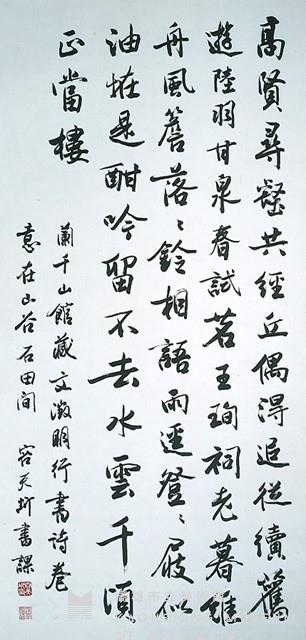 高賢尋壑共經丘偶得追從續舊
遊陸羽甘泉春試茗王珣祠老暮維
舟風簷落〻鈴相語雨逕登〻屐似
油恠是酣吟留不去水雲千頃
正當樓
蘭千山館藏文徵明行書詩卷
意在山谷石田間 容天圻書課